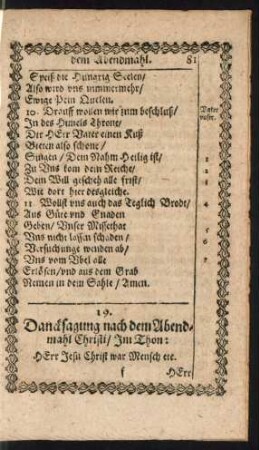 dem Abendmahl. 81
Speiß die Hungrig Seelen/
Also wird uns nimmermehr/
Ewige Pein Quelen.
10. Drauff wollen wir zum beschluß/
In des Himels Throne/
Dir HErr Vater einen Kuß
Bieten also schone/
Singen/ Dein Nahm Heilig ist/
Zu Uns kom dein Reiche/
Dein Will gescheh alle frist/
Wie dort hier desgleiche.
11 Wollst vns auch das Teglich Brodt/
Aus Güte vnd Gnaden
Geben/ Vnser Missethat
Vns nicht lassen schaden/
Versuchunge wenden ab/
Vns vom Vbel alle
Erlösen/vnd aus dem Grab
Nemen in dem Sahle/ Amen.
Vater
unser.
1
2
3
4
5
6
7
19.
Dancksagung nach dem Abend-
mahl Christi/ Im Thon:
HErr Jesu Christ war Mensch etc.
f HErr